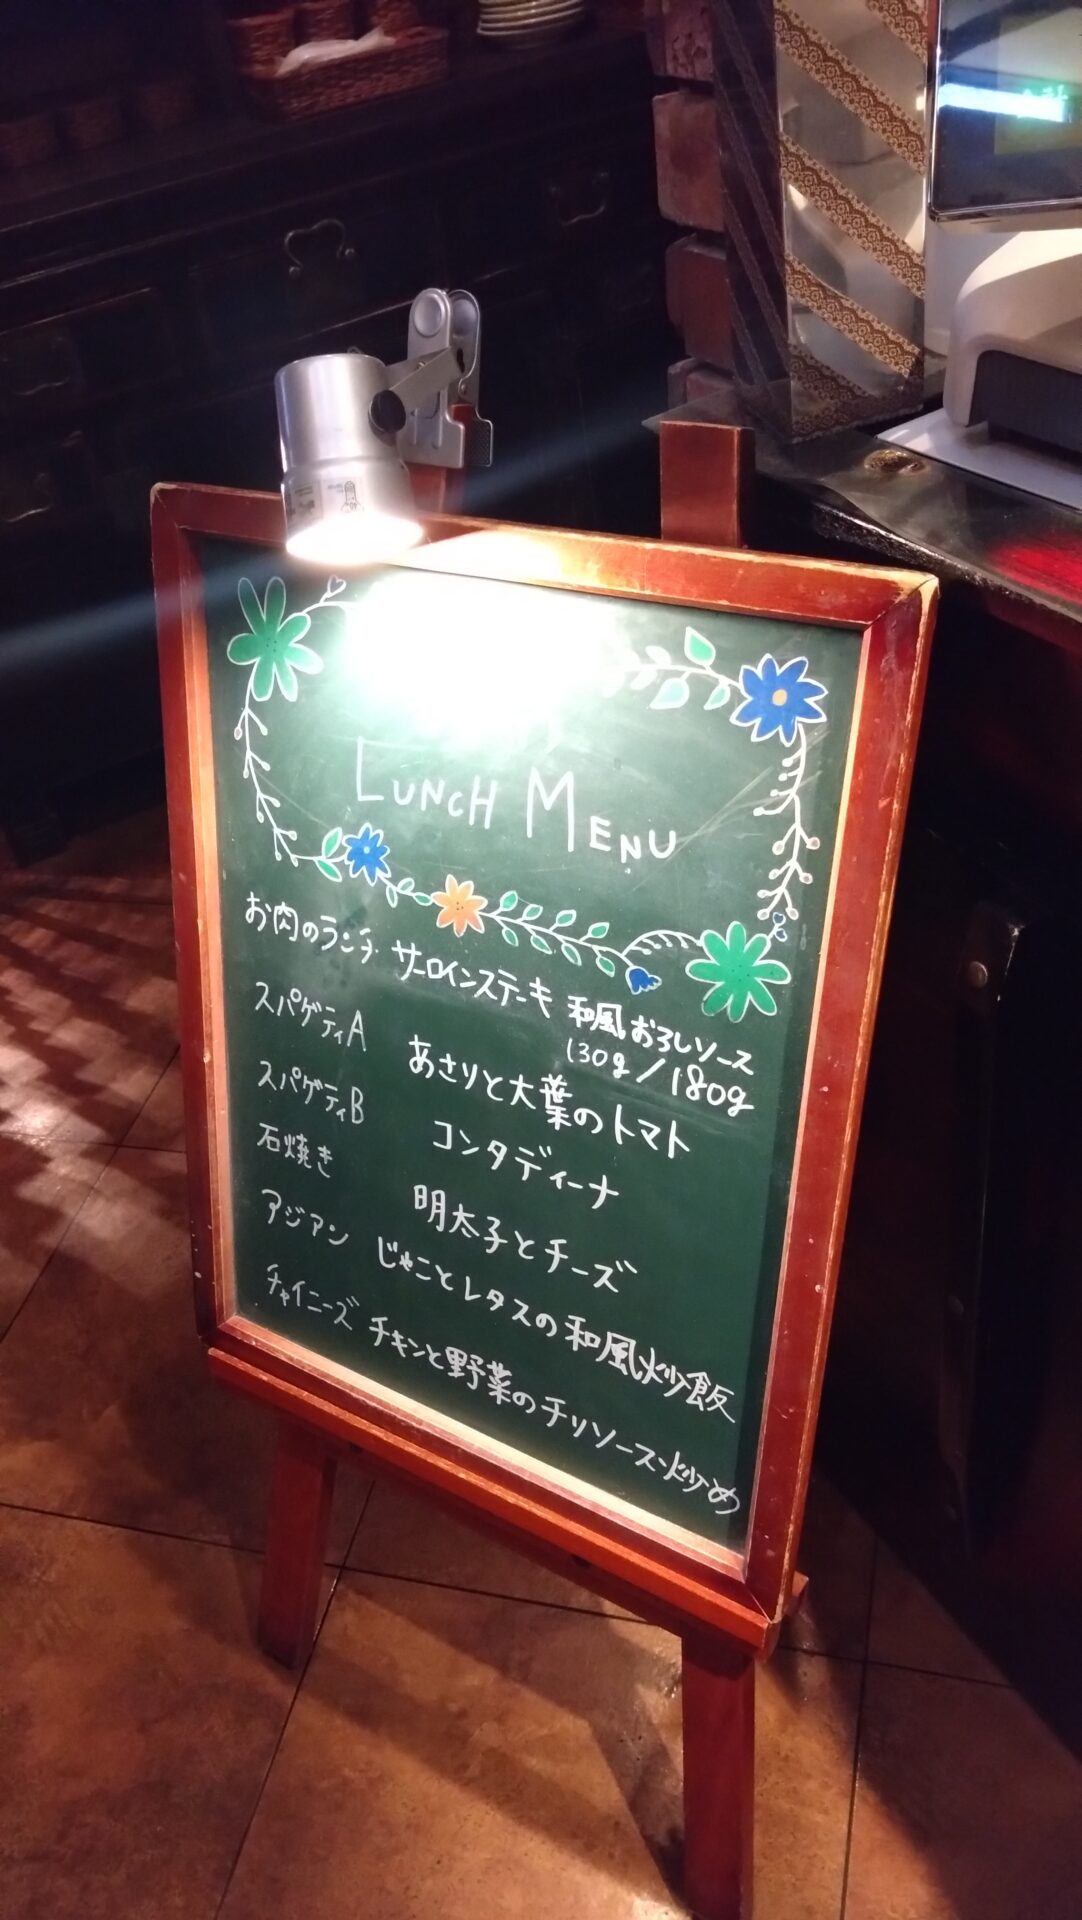 LUNCH MENU
お肉のランチ サーロインステーキ 和風おろしソース
130g/180g
スパゲティA あさりと大葉のトマト
スパゲティB コンタディーナ
石焼き 明太子とチーズ
アジアン じゃことレタスの和風炒飯
チャイニーズ チキンと野菜のチリソース炒め